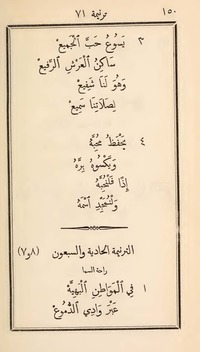 ١٥٠
ترنيمة ٧١
٣ يَسُوعُ حَبَّ ٱلْجَمِيعْ
سَاكِنُ ٱلْعَرْشِ ٱلرَّفِيعْ
وَهُوَ لَنَا شَفِيعْ
لِصَلَاتِنَا سَمِيعْ
٤ يَحْفَظُ مُحِبَّهُ
وَيَكْسُوهُ بِرَّهُ
إِذًا فَلْنُحِبَّهُ
وَلْنُمَجِّدِ ٱسْمَهُ
الترنيمة الحادية والسبعون (٨و٧)
راحة السما
١ فِي ٱلْمَوَاطِنِ ٱلْبَهِيَّهْ
عَبْرَ وَادِي ٱلدُّمُوعْ